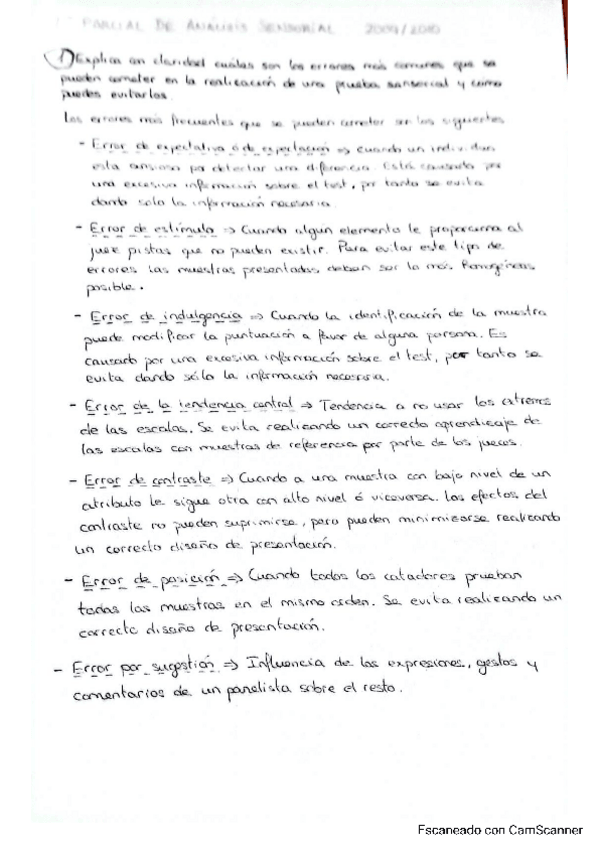 PARCIAL DE ANÁLISIS SENSORIAL 2009/2010
1) Explica con claridad cuáles son los errores más comunes que se
pueden cometer en la realización de una prueba sensorial y como
puedes evitarlos.
Los errores más frecuentes que se pueden cometer son los siguientes
- Error de expectativa ó de expectación => Cuando un individuo
esta ansioso por detectar una diferencia. Está causado por
una excesiva información sobre el test, por tanto se evita
dando solo la información necesaria.
- Error de estímulo => Cuando algun elemento le proporciona al
juez pistas que no pueden existir. Para evitar este tipo de
errores las muestras presentadas deben ser lo más homogéneas
posible.
- Error de indulgencia => Cuando la identificación de la muestra
puede modificar la puntuación a favor de alguna persona. Es
causado por una excesiva información sobre el test, por tanto se
evita dando sólo la información necesaria.
- Error de la tendencia central => Tendencia a no usar los extremos
de las escalas. Se evita realizando un correcto aprendizaje de
las escalas con muestras de referencia por parte de los jueces.
- Error de contraste => Cuando a una muestra con bajo nivel de un
atributo le sigue otra con alto nivel ó viceversa. Los efectos del
contraste no pueden suprimirse, pero pueden minimizarse realizando
un correcto diseño de presentación.
- Error de posición => Cuando todos los catadores prueban
todas las muestras en el mismo orden. Se evita realizando un
correcto diseño de presentación.
- Error por sugestión => Influencia de las expresiones, gestos y
comentarios de un panelista sobre el resto.
Escaneado con CamScanner